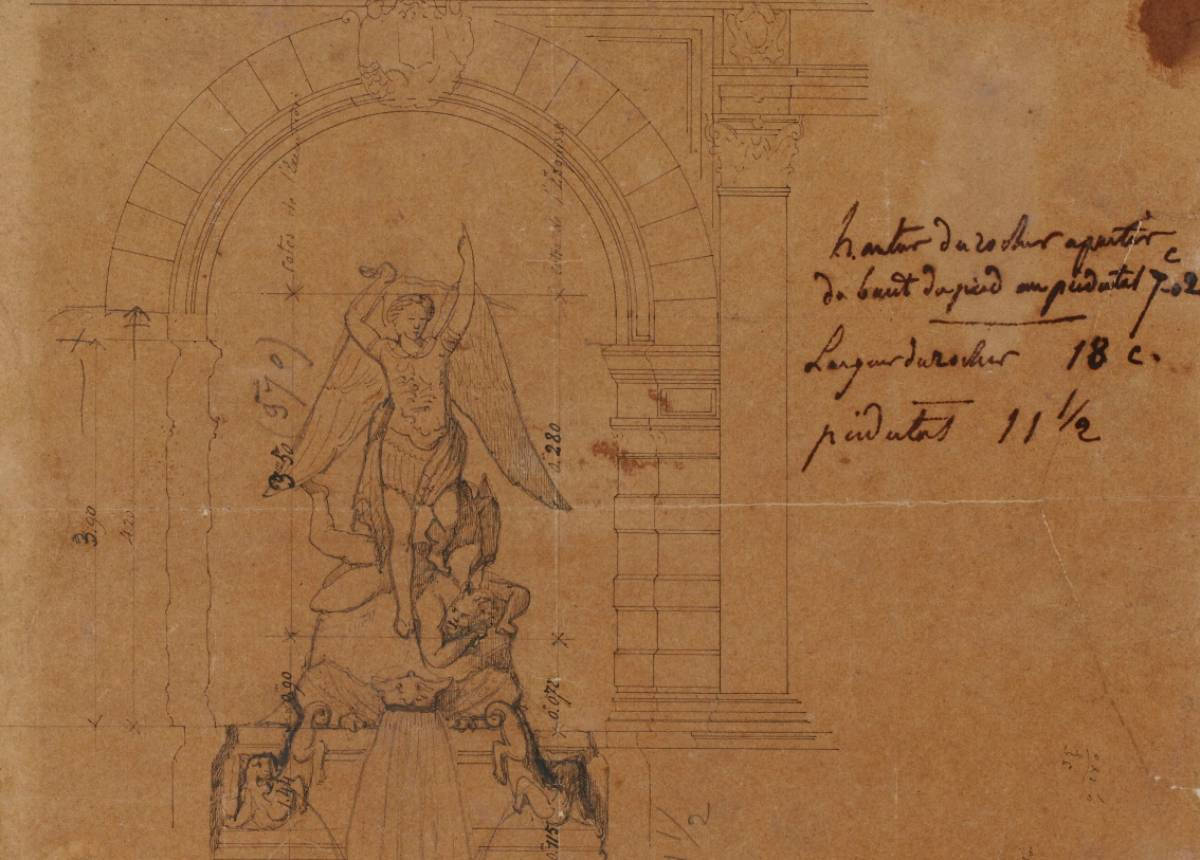 hauteur du rocher a partir
du haut du pied au piédestal 7 c 02
Largeur du rocher 18 c.
piédestal 11 1/2
cotes de l'
de l'Esquisse
3.50 (570)
0.280
3.90
4.20
0.90
0.072
0.115
1/2